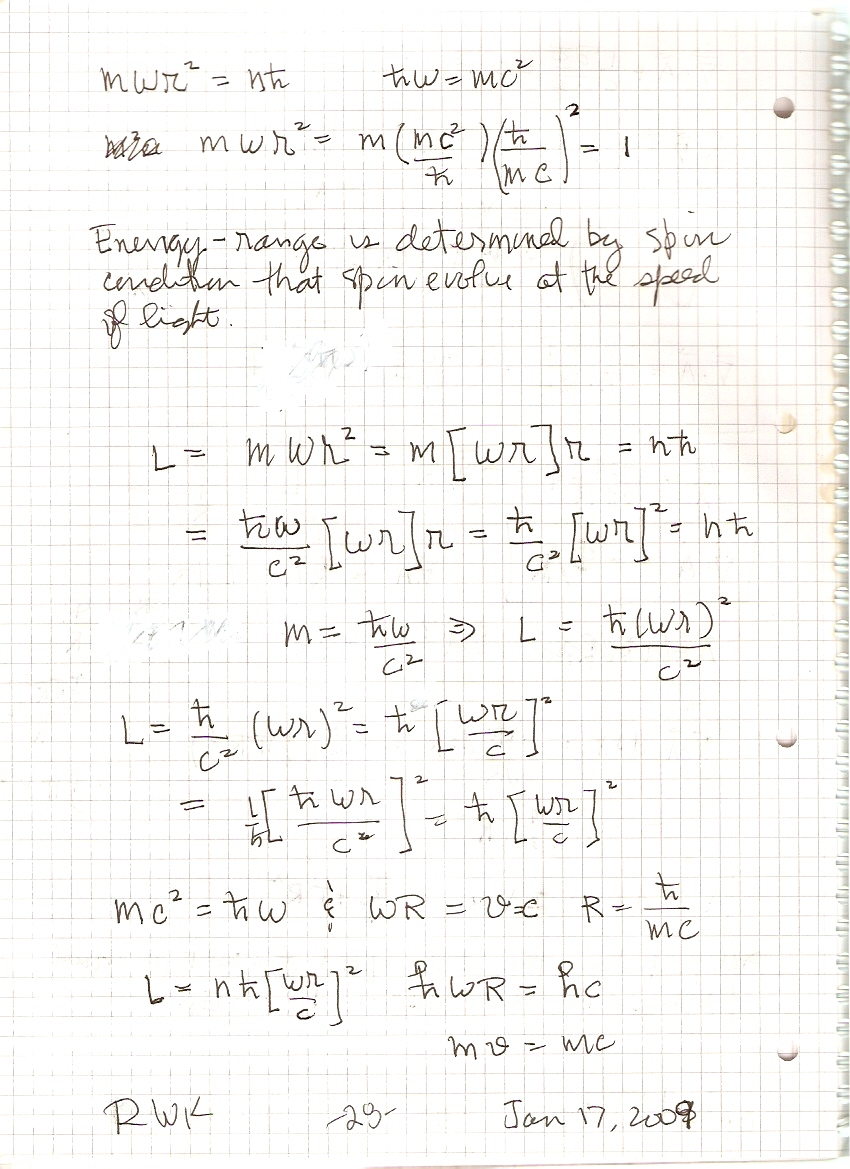 mωr² = nħ ħω = mc²
mωr² = m(mc²/ħ)(ħ/mc)² = 1
Energy-range is determined by spin
condition that spin evolve at the speed
of light.
L = mωr² = m[ωr]r = nħ
= ħω/c² [ωr]r = ħ/c² [ωr]² = nħ
m = ħω/c² ⇒ L = ħ(ωr)²/c²
L = ħ/c² (ωr)² = ħ[ωr/c]²
= 1/ħ[ħωr/c]² = ħ[ωr/c]²
mc² = ħω & ωR = v=c R = ħ/mc
L = nħ[ωr/c]² ħωR = ħc
mv = mc
RWK -29- Jan 17, 2009